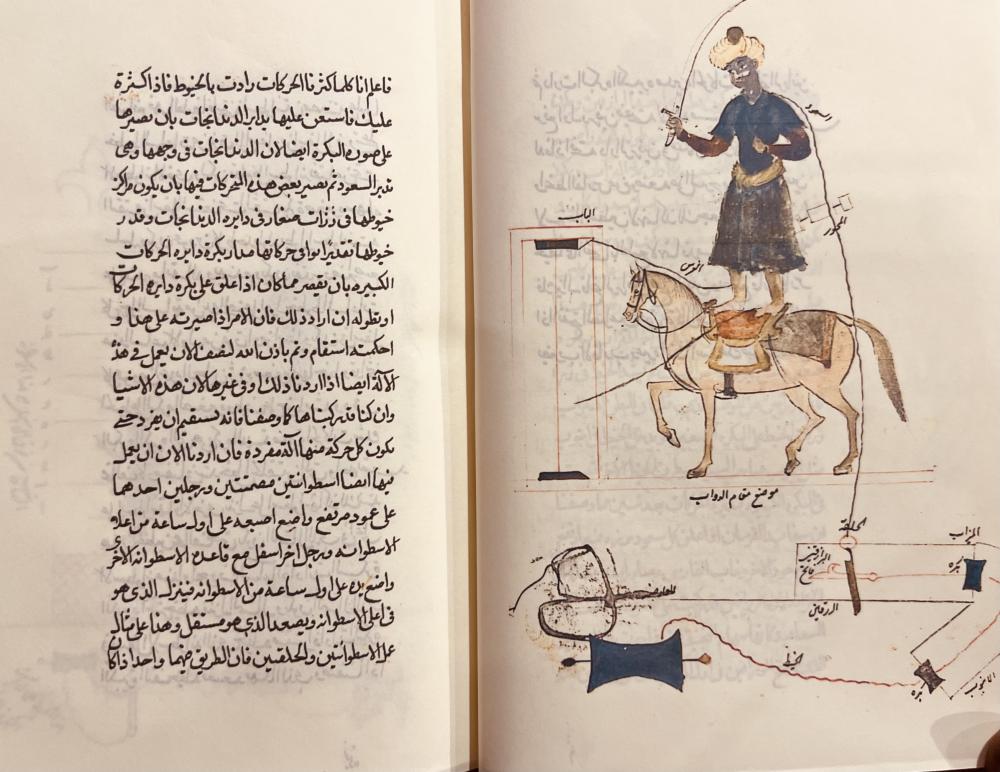 فاعلم انا كلما كثرنا الحركات زادت بالخيوط فاذا كثرة
عليك فاستعن عليها بداير الدندانجات بان تصيرها
على صورة البكرة ايضا لان الدندانجات فى وجهها وهى
تدير السعود ثم تصير بعض هذه المتحركات فيها بان يكون مراكز
خيوطها فى رزات صغار فى دايره الدندانجات وقدر
خيوطها تقديرا يوافى حركاتها مدار بكرة دايره الحركات
الكبيره بان يقصر مما كان اذا علق على بكرة دايره الحركات
او تطوله ان اراد ذلك فان الامر اذا صيرته على هذا و
احكمته استقام وتم باذن الله لنصف الان يعمل فى هذه
الآلة ايضا اذا اردنا ذلك او فى غيرها لان هذه الاشيا
وان كنا قد ركبناها كما وصفنا فانه يستقيم ان يفرد حتى
يكون كل حركة منها آلة مفردة فان اردنا الان ان يعمل
فيها ايضا اسطوانتين مصمتتين ورجلين احدهما
على عمود مرتفع واضع اصبعه على اول ساعة من اعلا
الاسطوانه ورجل اخر اسفل مع قاعده الاسطوانه الاخرى
واضع يده على اول ساعة من الاسطوانه فينزل الذى هو
فى اعلى الاسطوانه ويصعد الذى هو مستقل وهذا على مثال
عمل الاسطوانتين والحلقتين فان الطريق فيهما واحد اذا كان
السعود
المحور
الباب
موضع مقام الدواب
الحلقة
الميزاب
بكره
الدرفلين
الخيط
بكره